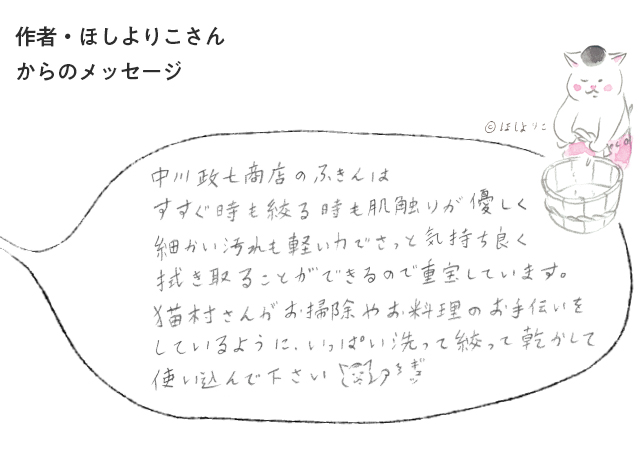 作者・ほしよりこさん
からのメッセージ
©ほしよりこ
中川政七商店のふきんは
すすぐ時も絞る時も肌触りが優しく
細かい汚れも軽い力でさっと気持ち良く
拭き取ることができるので重宝しています。
猫村さんがお掃除やお料理のお手伝いを
しているように、いっぱい洗って絞って乾かして
使い込んで下さい ギュッ